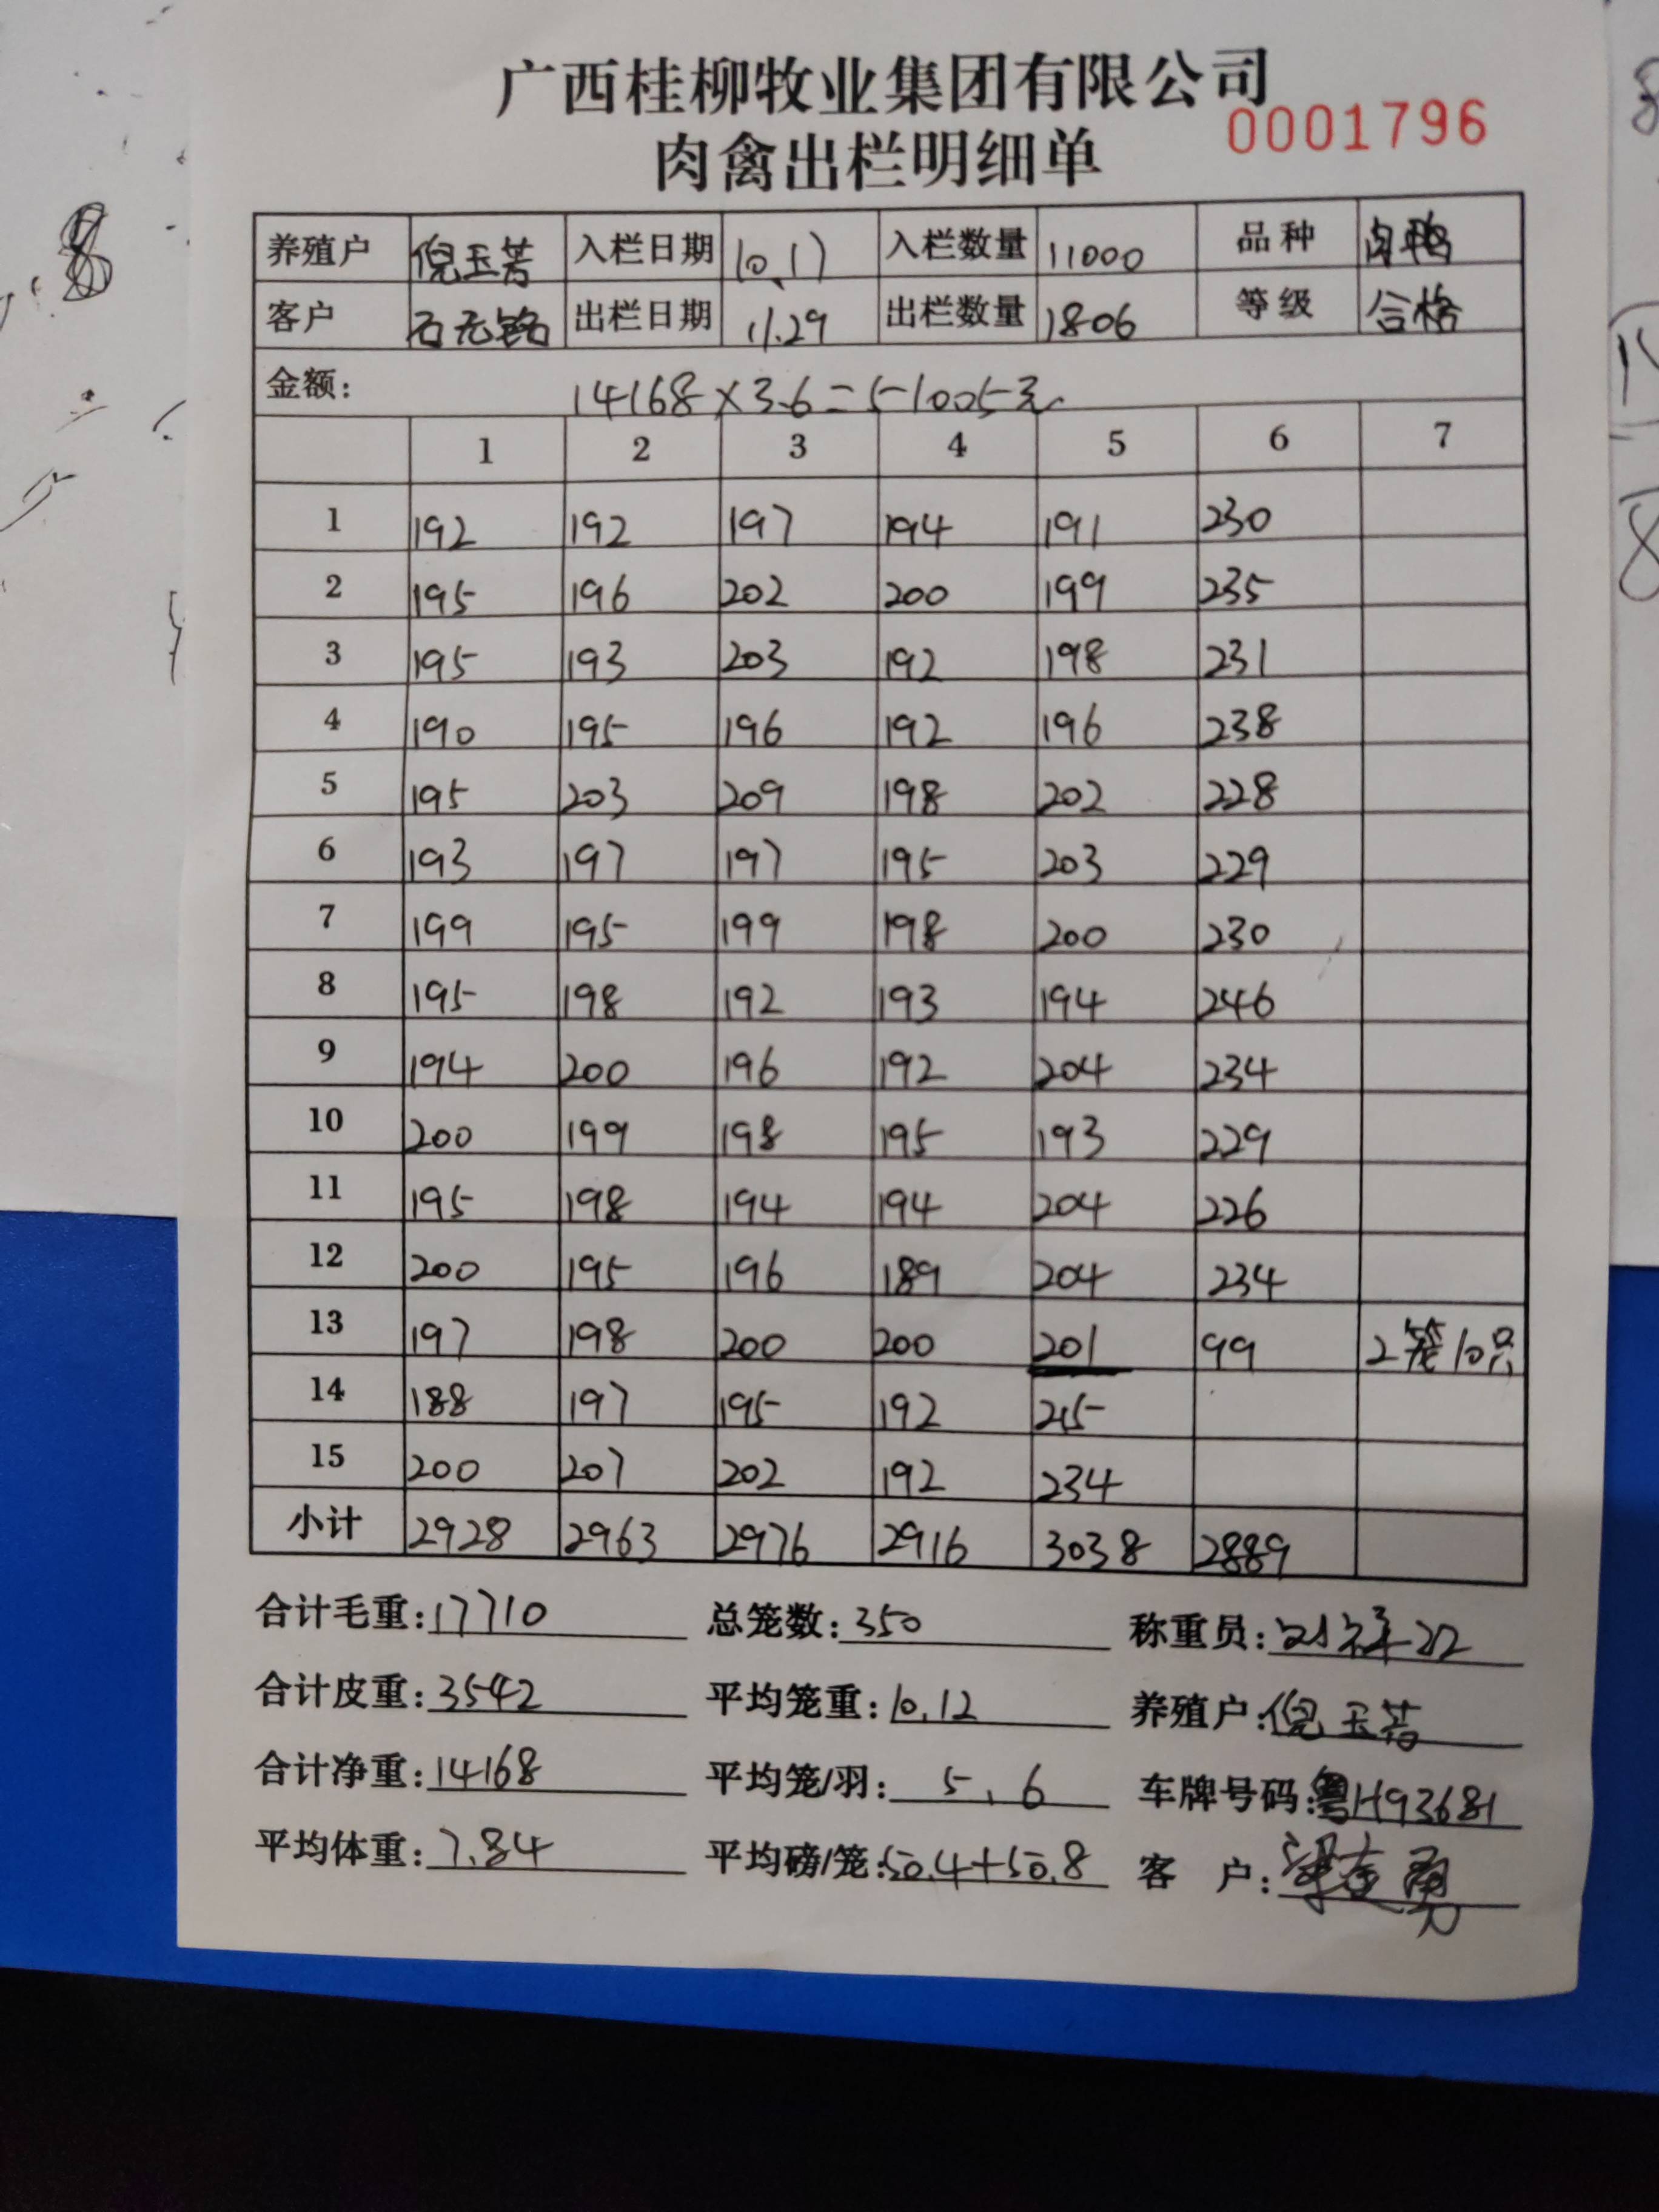 广西桂柳牧业集团有限公司
0001796
肉禽出栏明细单
养殖户 倪玉芳 入栏日期 10.17 入栏数量 11000 品种 肉鸭
客户 石元铭 出栏日期 11.29 出栏数量 1806 等级 合格
金额: 14168×3.6=51005元
1 2 3 4 5 6 7
1 192 192 197 194 191 230
2 195 196 202 200 199 235
3 195 193 203 192 198 231
4 190 195 196 192 196 238
5 195 203 209 198 202 228
6 193 197 197 195 203 229
7 199 195 199 198 200 230
8 195 198 192 193 194 246
9 194 200 196 192 204 234
10 200 199 198 195 193 229
11 195 198 194 194 204 226
12 200 195 196 189 204 234
13 197 198 200 200 201 99 2笼10只
14 188 197 195 192 215
15 200 207 202 192 234
小计 2928 2963 2976 2916 3038 2889
合计毛重:17710 总笼数:350 称重员:
合计皮重:3542 平均笼重:10.12 养殖户:倪玉芳
合计净重:14168 平均笼/羽:5.6 车牌号码:粤H93681
平均体重:7.84 平均磅/笼:50.4+50.8 客 户: